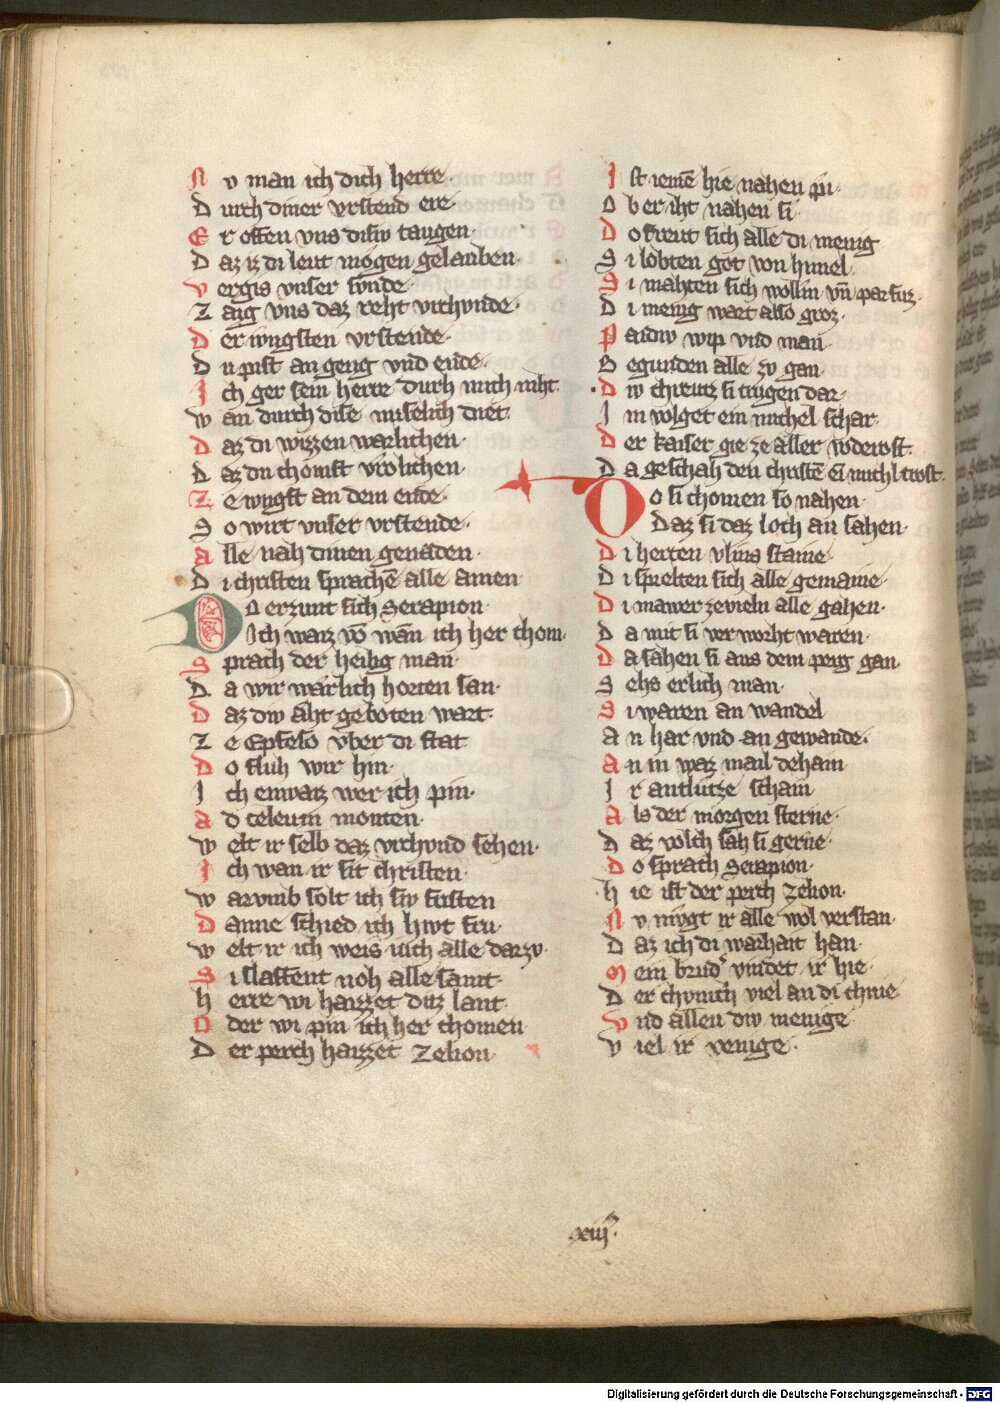 N v man ich dich herre·
D urch diner vrstend ere·
E r offen vns disiv taugen·
D az iz di leut mogen gelauben·
V ergis vnser svnde·
Z aig vns daz reht vrchvnde·
D er ivngsten vrstende·
D u pist an geng vnd ende·
I ch ger sein herre durh mich niht·
W an durch dise misselich diet·
D az du wizzen warlichen·
D az du chomst vrolichen·
Z e ivngst an dem ende·
S o wirt vnser vrstende·
A lle nah dinen genaden·
D i christen sprachē alle amen
D o erzunt sich Serapion·
Ich waiz vō wān ich her chom·
S prach der heilig man·
D a wir wærlich horten san·
D az div æht geboten wart·
Z e Epheso vber di stat
D o fluh wir hin·
I ch enwaiz wer ich pin·
A d celeum montem·
W elt ir selb daz vrchvnd sehen·
I ch wan ir sit christen·
W arvmb solt ich siv fristen
D anne schied ich hivt fru·
W elt ir ich weis iuch alle darzv·
S i slaffent noh alle samt·
H erre wi haizzet ditz lant·
O der wi pin ich her chomen
D er perch haizzet Zelion·
I st iemē hie nahen pei·
O b er iht nahen si
D o freut sich alle di menig
S i lobten got von himel·
S i mahten sich wollin vn̄ parfuz·
D i menig wart also groz·
P aidiv wip vnd man·
B egunden alle zv gan·
D iv chreutz si trugen dar·
I m volget ein michel schar·
D er kaiser gie ze aller voderost·
D a geschah den christē ei michl trost·
D o si chomen so nahen·
Daz si daz loch an sahen·
D i herten vlins staine·
D i spielten sich alle gemaine·
D i mawer zevieln alle gahen·
D a mit si verworht waren·
D a sahen si aus dem perg gan·
S ehs erlich man·
S i waren an wandel
A n har vnd an gewande·
A n in waz mail dehain
I r antlutze schain
A ls der morgen sterne·
D az volch sah si gerne·
D o sprach Serapion·
H ie ist der perch Zelion·
N v mugt ir alle wol verstan·
D az ich di warhait han·
M ein brud' vindet ir hie·
D er chvnich viel an di chnie·
V nd allen div menige
V iel ir venige·
·xiij·
Digitalisierung gefördert durch die Deutsche Forschungsgemeinschaft - DFG